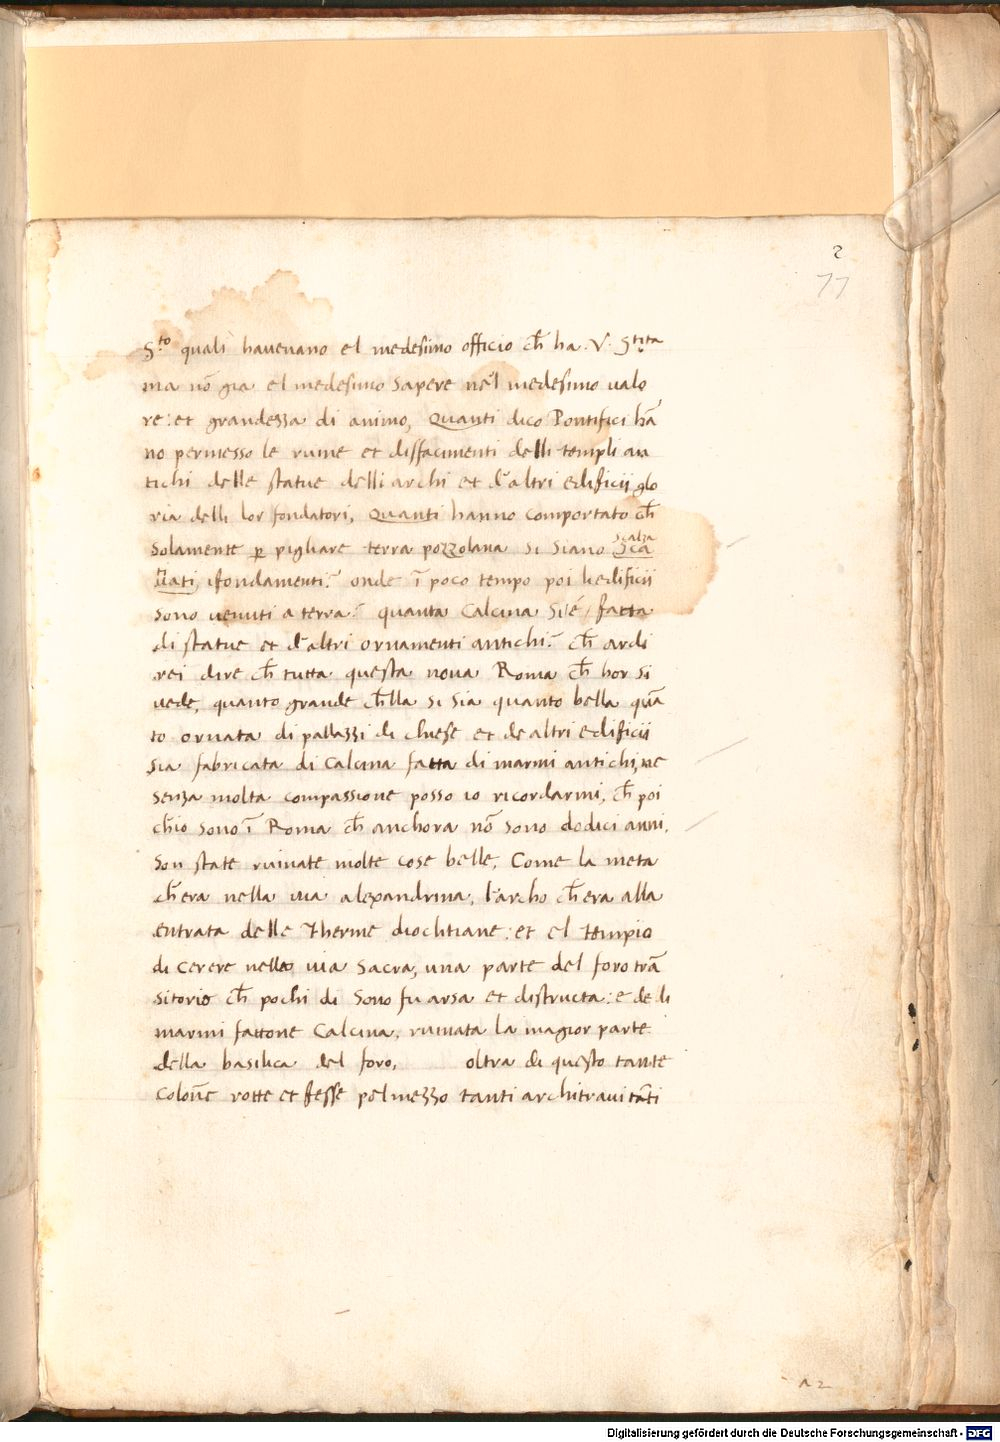 2
77
S.to quali havevano el medesimo officio ch̄ ha .V. S.tita
ma nõ gia el medesimo sapere ne'l medesimo valo
re: et grandezza di animo, Quanti dico Pontifici hã
no permesso le ruine et disfacimenti delli templi an
tichi delle statue delli archi et d'altri edificii glo
ria delli lor fondatori, Quanti hanno comportato ch̄
solamente p̱ pigliare terra pozzolana si siano
scalza
fondamenti? onde ĩ poco tempo poi li edificii
sono venuti a terra? quanta Calcina si é fatta
di statue et d'altri ornamenti antichi? ch̄ ardi
rei dire ch̄ tutta questa nova Roma ch̄ hor si
vede, quanto grande ch̄lla si sia quanto bella quã
to ornata di pallazzi di chiese et de altri edificii
sia fabricata di Calcina fatta di marmi antichi, ne
senza molta compassione posso io ricordarmi, ch̄ poi
ch̄io sono ĩ Roma ch̄ anchora nõ sono dodici anni,
son state ruinate molte cose belle, Come la meta
ch̄era nella via alexandrina, l'archo ch̄era alla
entrata delle Therme dioclitiane: et el tempio
di cerere nella via sacra, una parte del foro trã
sitorio ch̄ pochi di sono fu arsa et distructa: e de li
marmi fattone Calcina, ruinata la magior parte
della basilica del foro, oltra di questo tante
Colon̄e rotte et fesse pel mezzo tanti architravi tãti
A 2
Digitalisierung gefördert durch die Deutsche Forschungsgemeinschaft - DFG